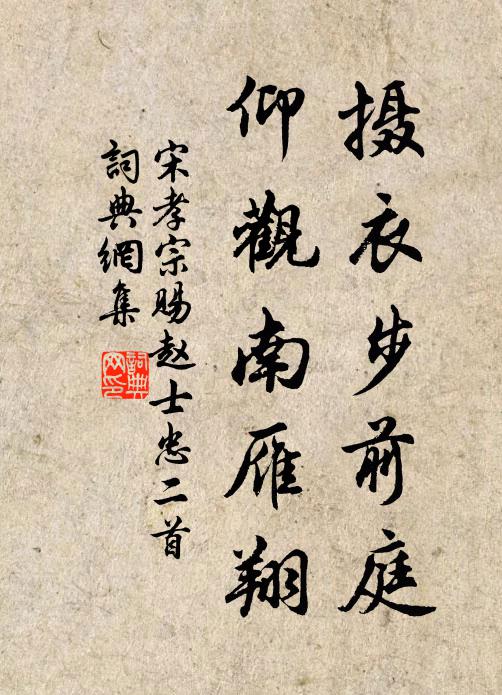 摄衣步前庭
仰觀南雁翔
宋孝宗賜赵士忠二首
詞典網集
詞典網印